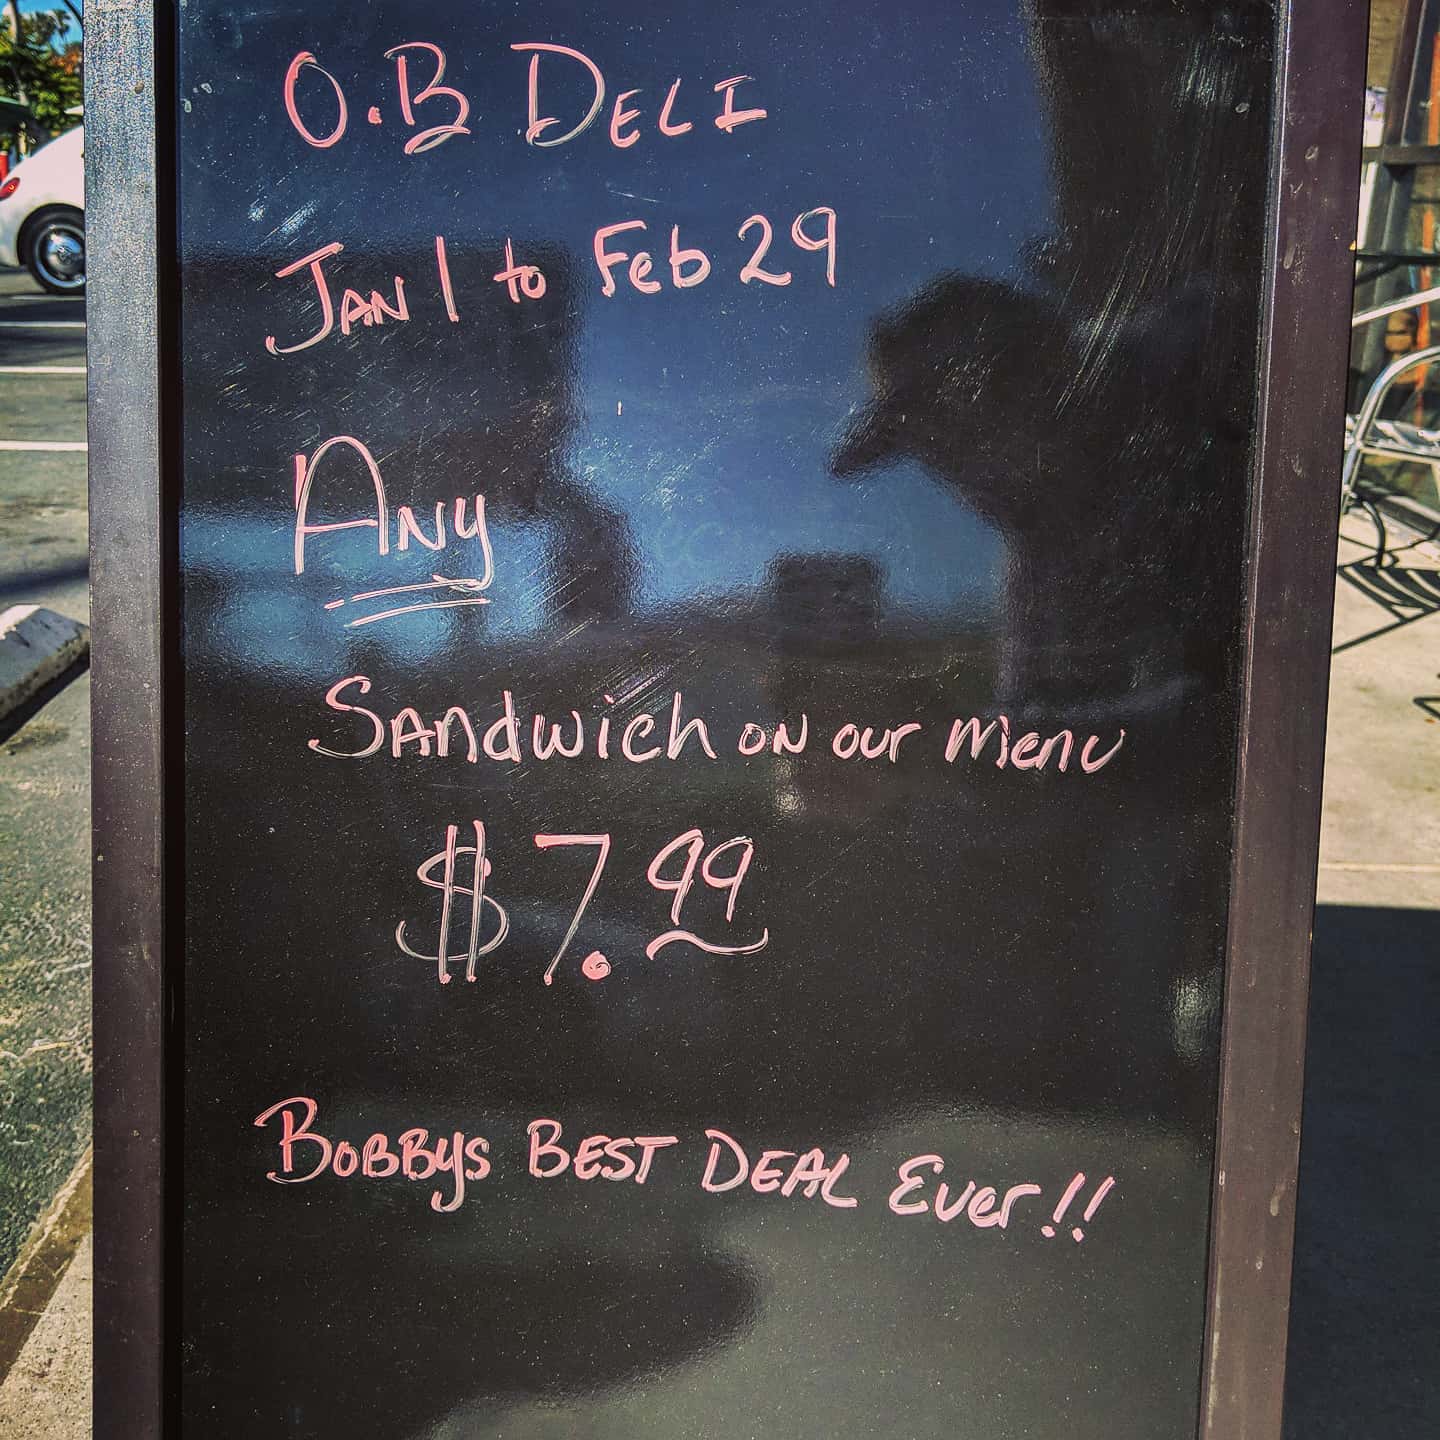 O.B DELI
JAN 1 to Feb 29
ANy
SANdwich ON our menu
$7.99
BOBBYS BEST DEAL Ever!!